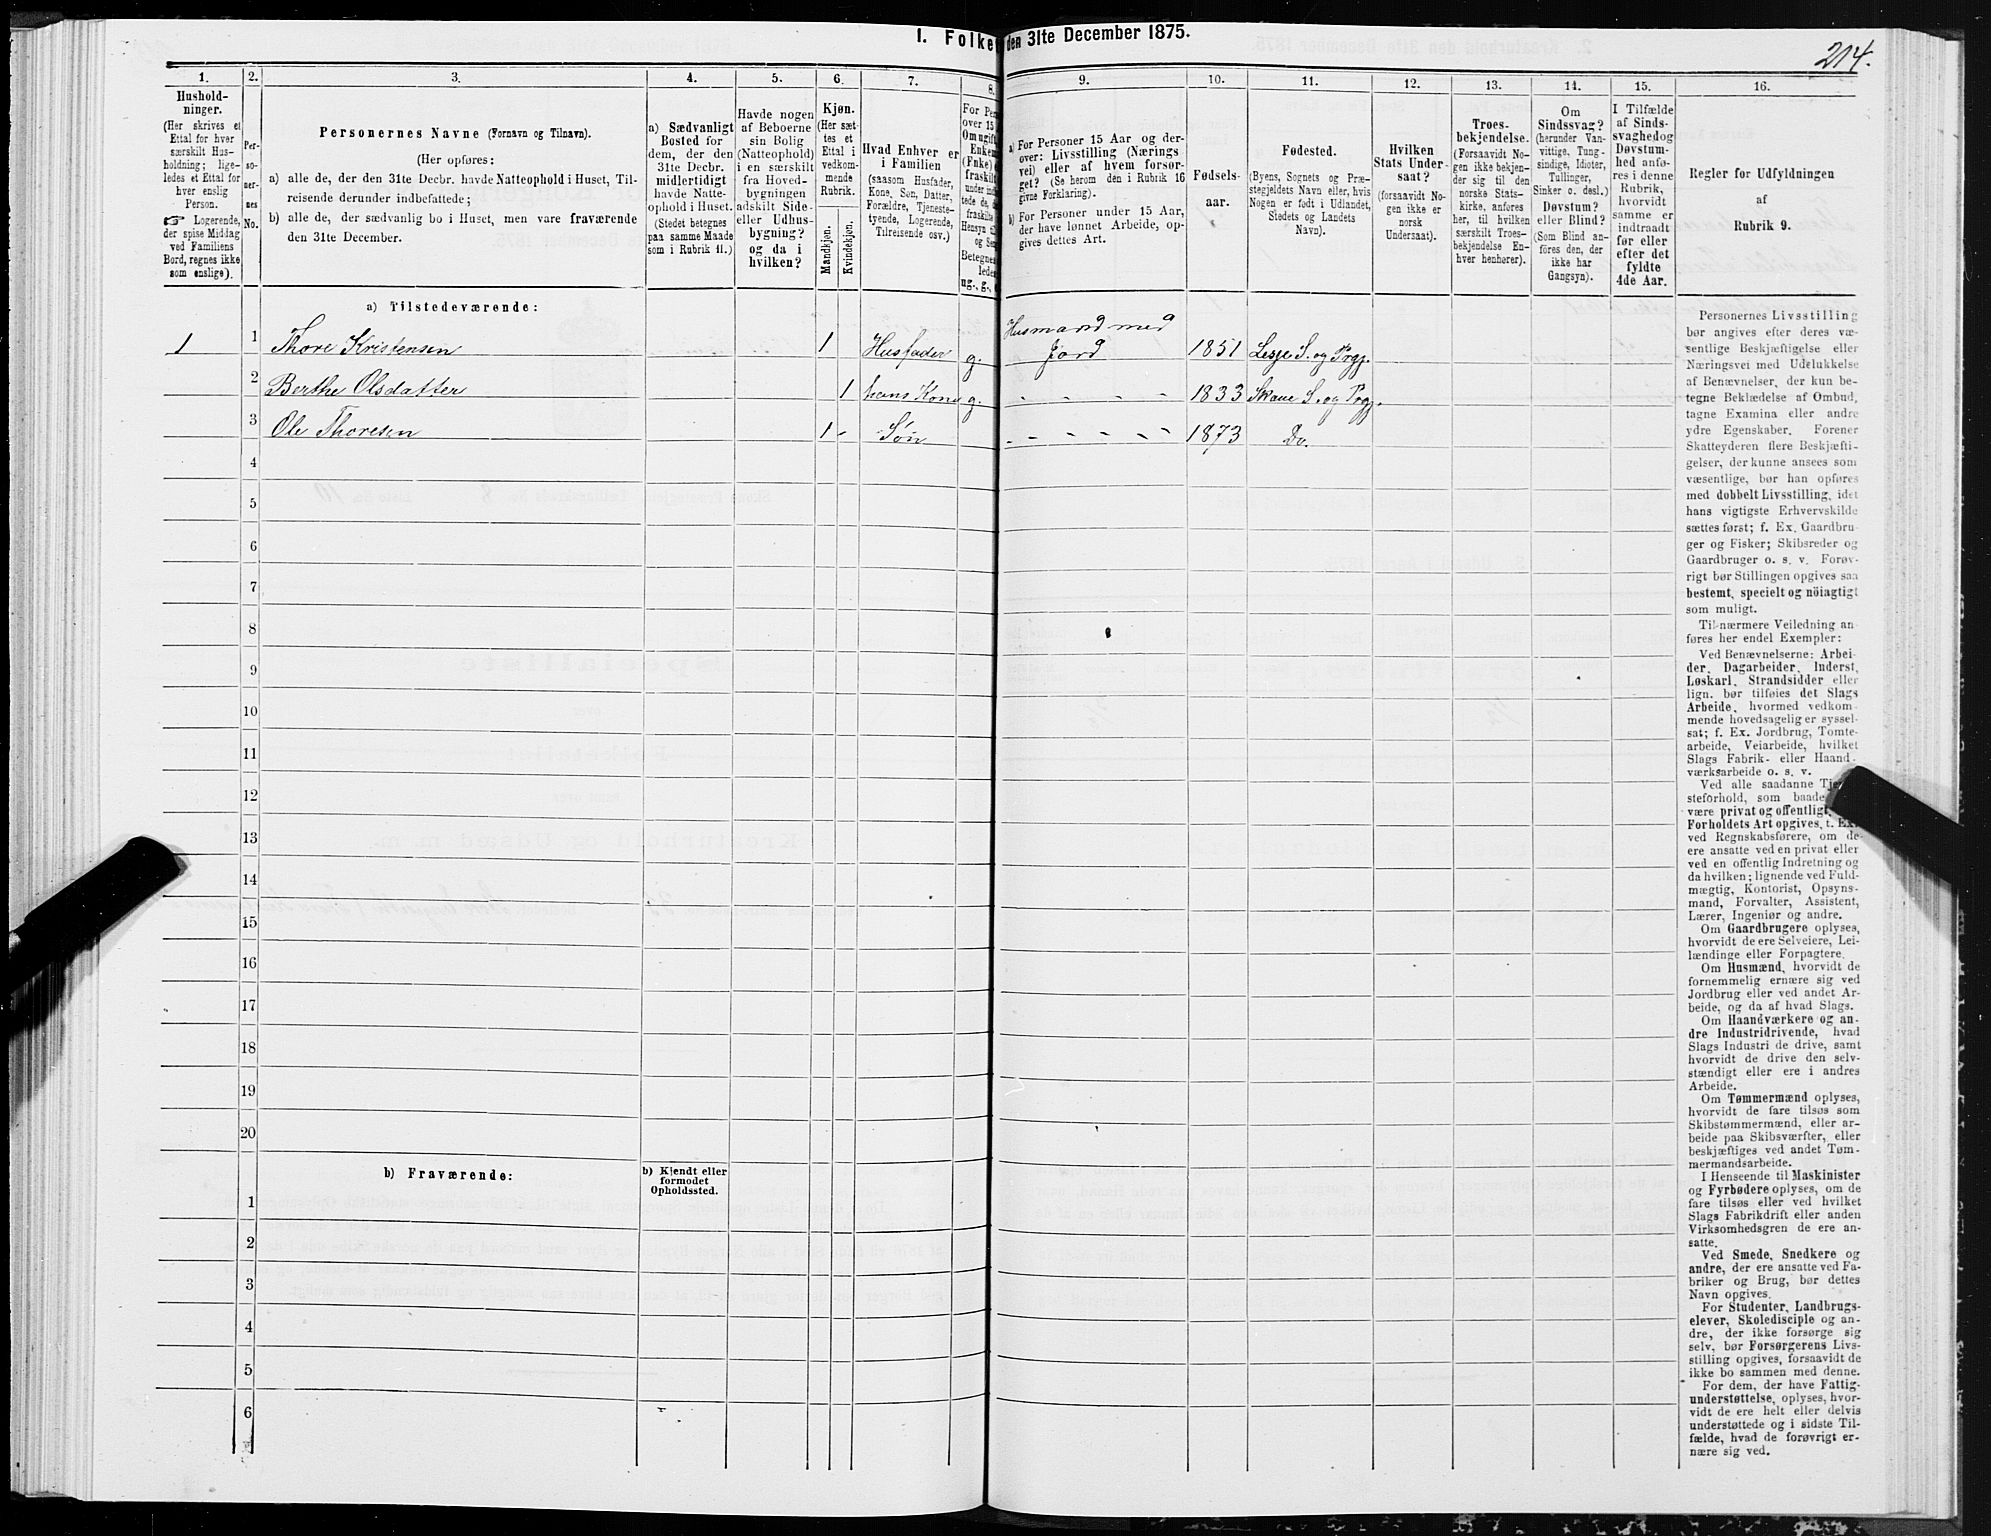 I. Folket den 31te December 1875.
214.
1. 2. 3. 4. 5. 6. 7. 8. 9. 10. 11. 12. 13. 14. 15. 16.
Hushold-
ninger.
(Her skrives et
Ettal for hver
særskilt Hus-
holdning; lige-
ledes et Ettal for
hver enslig
Person.
☞ Logerende,
der spise Middag
ved Familiens
Bord, regnes ikke
som enslige).
Per-
so-
ner-
nes
No.
Personernes Navne (Fornavn og Tilnavn).
(Her opføres:
a) alle de, der den 31te Decbr. havde Natteophold i Huset, Til-
reisende derunder indbefattede;
b) alle de, der sædvanlig bo i Huset, men vare fraværende
den 31te December.
a) Sædvanligt
Bosted for
dem, der den
31te Decbr.
midlertidigt
havde Natte-
ophold i Huset.
(Stedet betegnes
paa samme Maade
som i Rubrik 11.)
Havde nogen
af Beboerne
sin Bolig
(Natteophold)
i en særskilt
fra Hoved-
bygningen
adskilt Side-
eller Udhus-
bygning?
og da i
hvilken?
Kjøn.
(Her sæt-
tes et
Ettal i
vedkom-
mende
Rubrik.
Mandkjøn.
Kvindekjøn.
Hvad Enhver er
i Familien
(saasom Husfader,
Kone, Søn, Datter,
Forældre, Tjeneste-
tyende, Logerende,
Tilreisende osv.)
For Per
over 15
Om ugift
Enkem
(Enke)
fraskilt
under ind
tede de,
fraskilte
Hensyn til
og Sen
Betegnes
ledes
ug., g.,
a) For Personer 15 Aar og der-
over: Livsstilling (Nærings-
vei) eller af hvem forsør-
get? (Se herom den i Rubrik 16
givne Forklaring).
b) For Personer under 15 Aar,
der have lønnet Arbeide, op-
gives dettes Art.
Fødsels-
aar.
Fødested.
(Byens, Sognets og Præ-
stegjeldets Navn eller, hvis
Nogen er født i Udlandet,
Stedets og Landets
Navn).
Hvilken
Stats Under-
saat?
(forsaavidt No-
gen ikke er
norsk
Undersaat).
Troes-
bekjendelse.
(Forsaavidt No-
gen ikke bekjen-
der sig til den
norske Stats-
kirke, anføres
her, til hvilken
særskilt Troes-
bekjendelse En-
hver henhører).
Om
Sindssvag?
(herunder Van-
vittige, Tung-
sindige, Idioter,
Tullinger,
Sinker o. desl.)
Døvstum?
eller Blind?
(Som Blind an-
føres den, der
ikke har
Gangsyn).
I Tilfælde
af Sinds-
svaghed og
Døvstum-
hed anfø-
res i denne
Rubrik,
hvorvidt
samme er
indtraadt
før eller
efter det
fyldte
4de Aar.
Regler for Udfyldningen
af
Rubrik 9.
a) Tilstedeværende:
1 1 Thore Kristensen 1 Husfader g. Husmand med Jord 1851 Lesje S. og Prgj.
2 Berthe Olsdatter 1 hans Kone g. - - - - - 1833 Skaue S. og Prgj.
3 Ole Thoresen 1 - Søn - - - - - - 1873 Do.
4
5
6
7
8
9
10
11
12
13
14
15
16
17
18
19
20
b) Fraværende:
b) Kjendt eller
formodet
Opholdssted.
1
2
3
4
5
6
Personernes Livsstilling
bør angives efter deres væ-
sentlige Beskjæftigelse eller
Næringsvei med Udelukkelse
af Benævnelser, der kun be-
tegne Beklædelse af Ombud,
tagne Examina eller andre
ydre Egenskaber. Forener
Skatteyderen flere Beskjæfti-
gelser, der kunne ansees som
væsentlige, bør han opføres
med dobbelt Livsstilling, idet
hans vigtigste Erhvervskilde
sættes først; f. Ex. Gaardbru-
ger og Fisker; Skibsreder og
Gaardbruger o. s. v. Forøv-
rigt bør Stillingen opgives saa
bestemt, specielt og nöiagtigt
som muligt.
Til nærmere Veiledning an-
føres her endel Exempler:
Ved Benævnelserne: Arbei-
der, Dagarbeider, Inderst,
Løskarl, Strandsidder eller
lign. bør tilføies det Slags
Arbeide, hvormed vedkom-
mende hovedsagelig er syssel-
sat; f. Ex. Jordbrug, Tomte-
arbeide, Veiarbeide, hvilket
Slags Fabrik- eller Haand-
værksarbeide o. s. v.
Ved alle saadanne Tje
steforhold, som baade
være privat og offentligt,
Forholdets Art opgives, t. Ex.
ved Regnskabsførere, om de-
ere ansatte ved en privat eller
ved en offentlig Indretning og
da hvilken; lignende ved Fuld-
mægtig, Kontorist, Opsyns-
mand, Forvalter, Assistent,
Lærer, Ingeniør og andre.
Om Gaardbrugere oplyses,
hvorvidt de ere Selveiere, Lei-
lændinge eller Forpagtere.
Om Husmænd, hvorvidt de
fornemmelig ernære sig ved
Jordbrug eller ved andet Ar-
beide, og da af hvad Slags.
Om Haandværkere og an-
dre Industridrivende, hvad
Slags Industri de drive, samt
hvorvidt de drive den selv-
stændigt eller ere i andres
Arbeide.
Om Tømmermænd oplyses,
hvorvidt de fare tilsøs som
Skibstømmermænd, eller ar-
beide paa Skibsværfter, eller
beskjæftiges ved andet Tøm-
mermandsarbeide.
I Henseende til Maskinister
og Fyrbødere oplyses, om de
fare tilsøs eller ved hvilket
Slags Fabrikdrift eller anden
Virksomhedsgren de ere an-
satte.
Ved Smede, Snedkere og
andre, der ere ansatte ved Fa-
briker og Brug, bør dettes
Navn opgives.
For Studenter, Landbrugs-
elever, Skoledisciple og an-
dre, der ikke forsørge sig
selv, bør Forsørgerens Livs-
stilling opgives, forsaavidt de
ikke bo sammen med denne.
For dem, der have Fattig-
understøttelse, oplyses, hvor-
vidt de ere helt eller delvis
understøttede og i sidste Til-
fælde, hvad de forøvrigt er-
nære sig ved.